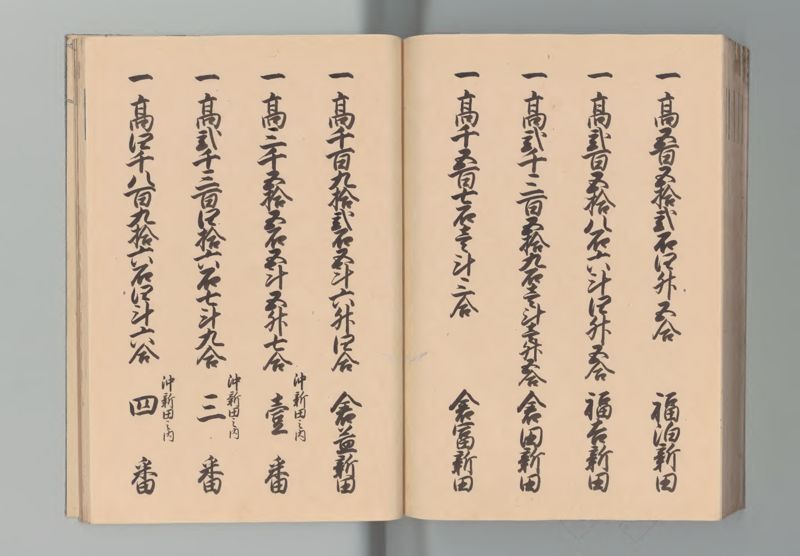 一 高五百五拾弐石四升五合 福泊新田
一 高弐百五拾八石六斗四升五合 福吉新田
一 高弐千二百五拾九石壱斗壱升五合 倉田新田
一 高千五百七石壱斗二合 倉富新田
一 高千百九拾弐石五斗六升四合 倉益新田
一 高二千五拾五石五斗五升七合 沖新田之内 壹番
一 高弐千三百四拾六石七斗九合 沖新田之内 三番
一 高四千八百九拾六石四斗六合 沖新田之内 四番